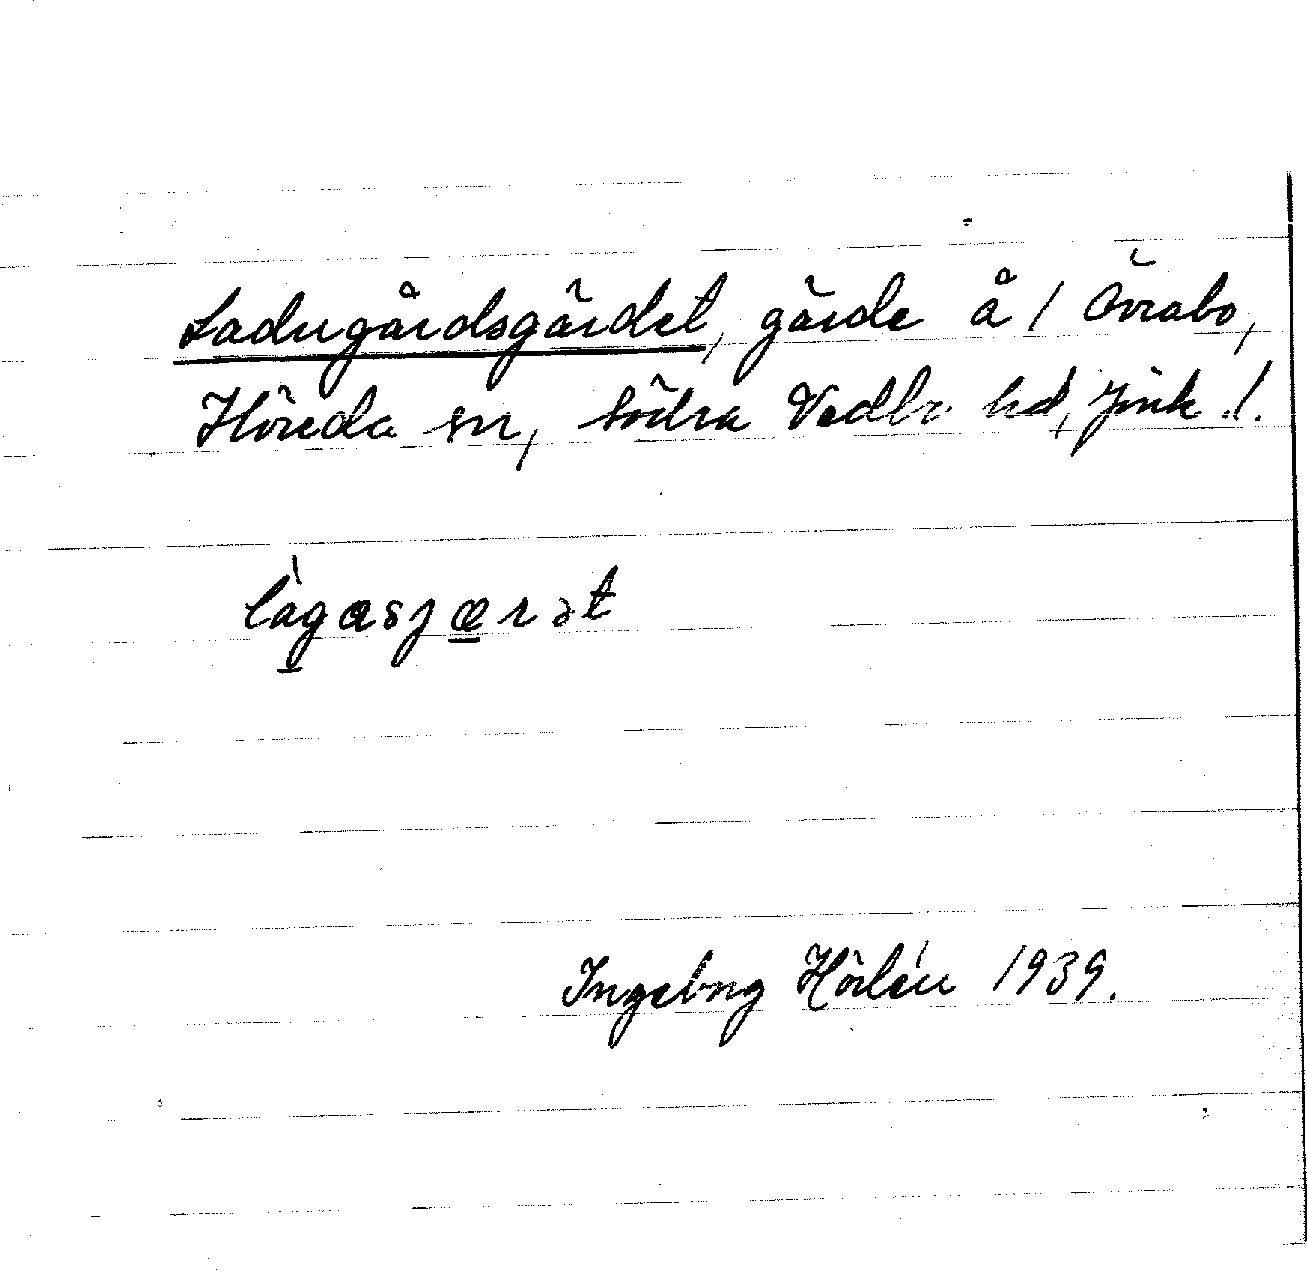 Ladugårdsgärdet, gärde å 1 Övrabo,
Höreda sn, Södra Vedbo hd, Jönk. l.
làgasjærət
Ingeborg Hörlén 1939.